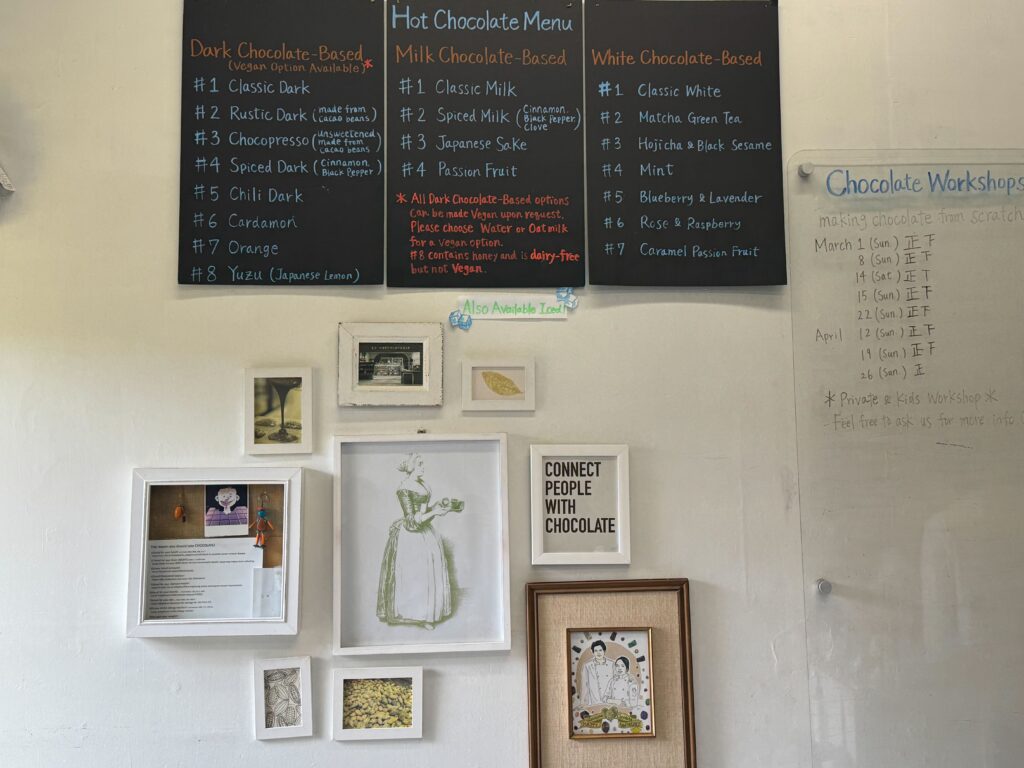 Hot Chocolate Menu
Dark Chocolate-Based
(Vegan Option Available)*
#1 Classic Dark
#2 Rustic Dark (made from cacao beans)
#3 Chocopresso (unsweetened made from cacao beans)
#4 Spiced Dark (Cinnamon Black Pepper)
#5 Chili Dark
#6 Cardamon
#7 Orange
#8 Yuzu (Japanese Lemon)
Milk Chocolate-Based
#1 Classic Milk
#2 Spiced Milk (Cinnamon Black Pepper Clove)
#3 Japanese Sake
#4 Passion Fruit
* All Dark Chocolate-Based options
can be made Vegan upon request.
Please choose Water or Oat milk
for a vegan option.
#8 contains honey and is dairy-free
but not Vegan.
White Chocolate-Based
#1 Classic White
#2 Matcha Green Tea
#3 Hojicha & Black Sesame
#4 Mint
#5 Blueberry & Lavender
#6 Rose & Raspberry
#7 Caramel Passion Fruit
Also Available Iced!
Chocolate Workshops
making chocolate from scratch
March 1 (Sun.) 正下
8 (Sun.) 正下
14 (Sat.) 正下
15 (Sun.) 正下
22 (Sun.) 正下
April 12 (Sun.) 正下
19 (Sun.) 正下
26 (Sun.) 正
* Private & Kids Workshop *
- Feel free to ask us for more info.
CONNECT
PEOPLE
WITH
CHOCOLATE